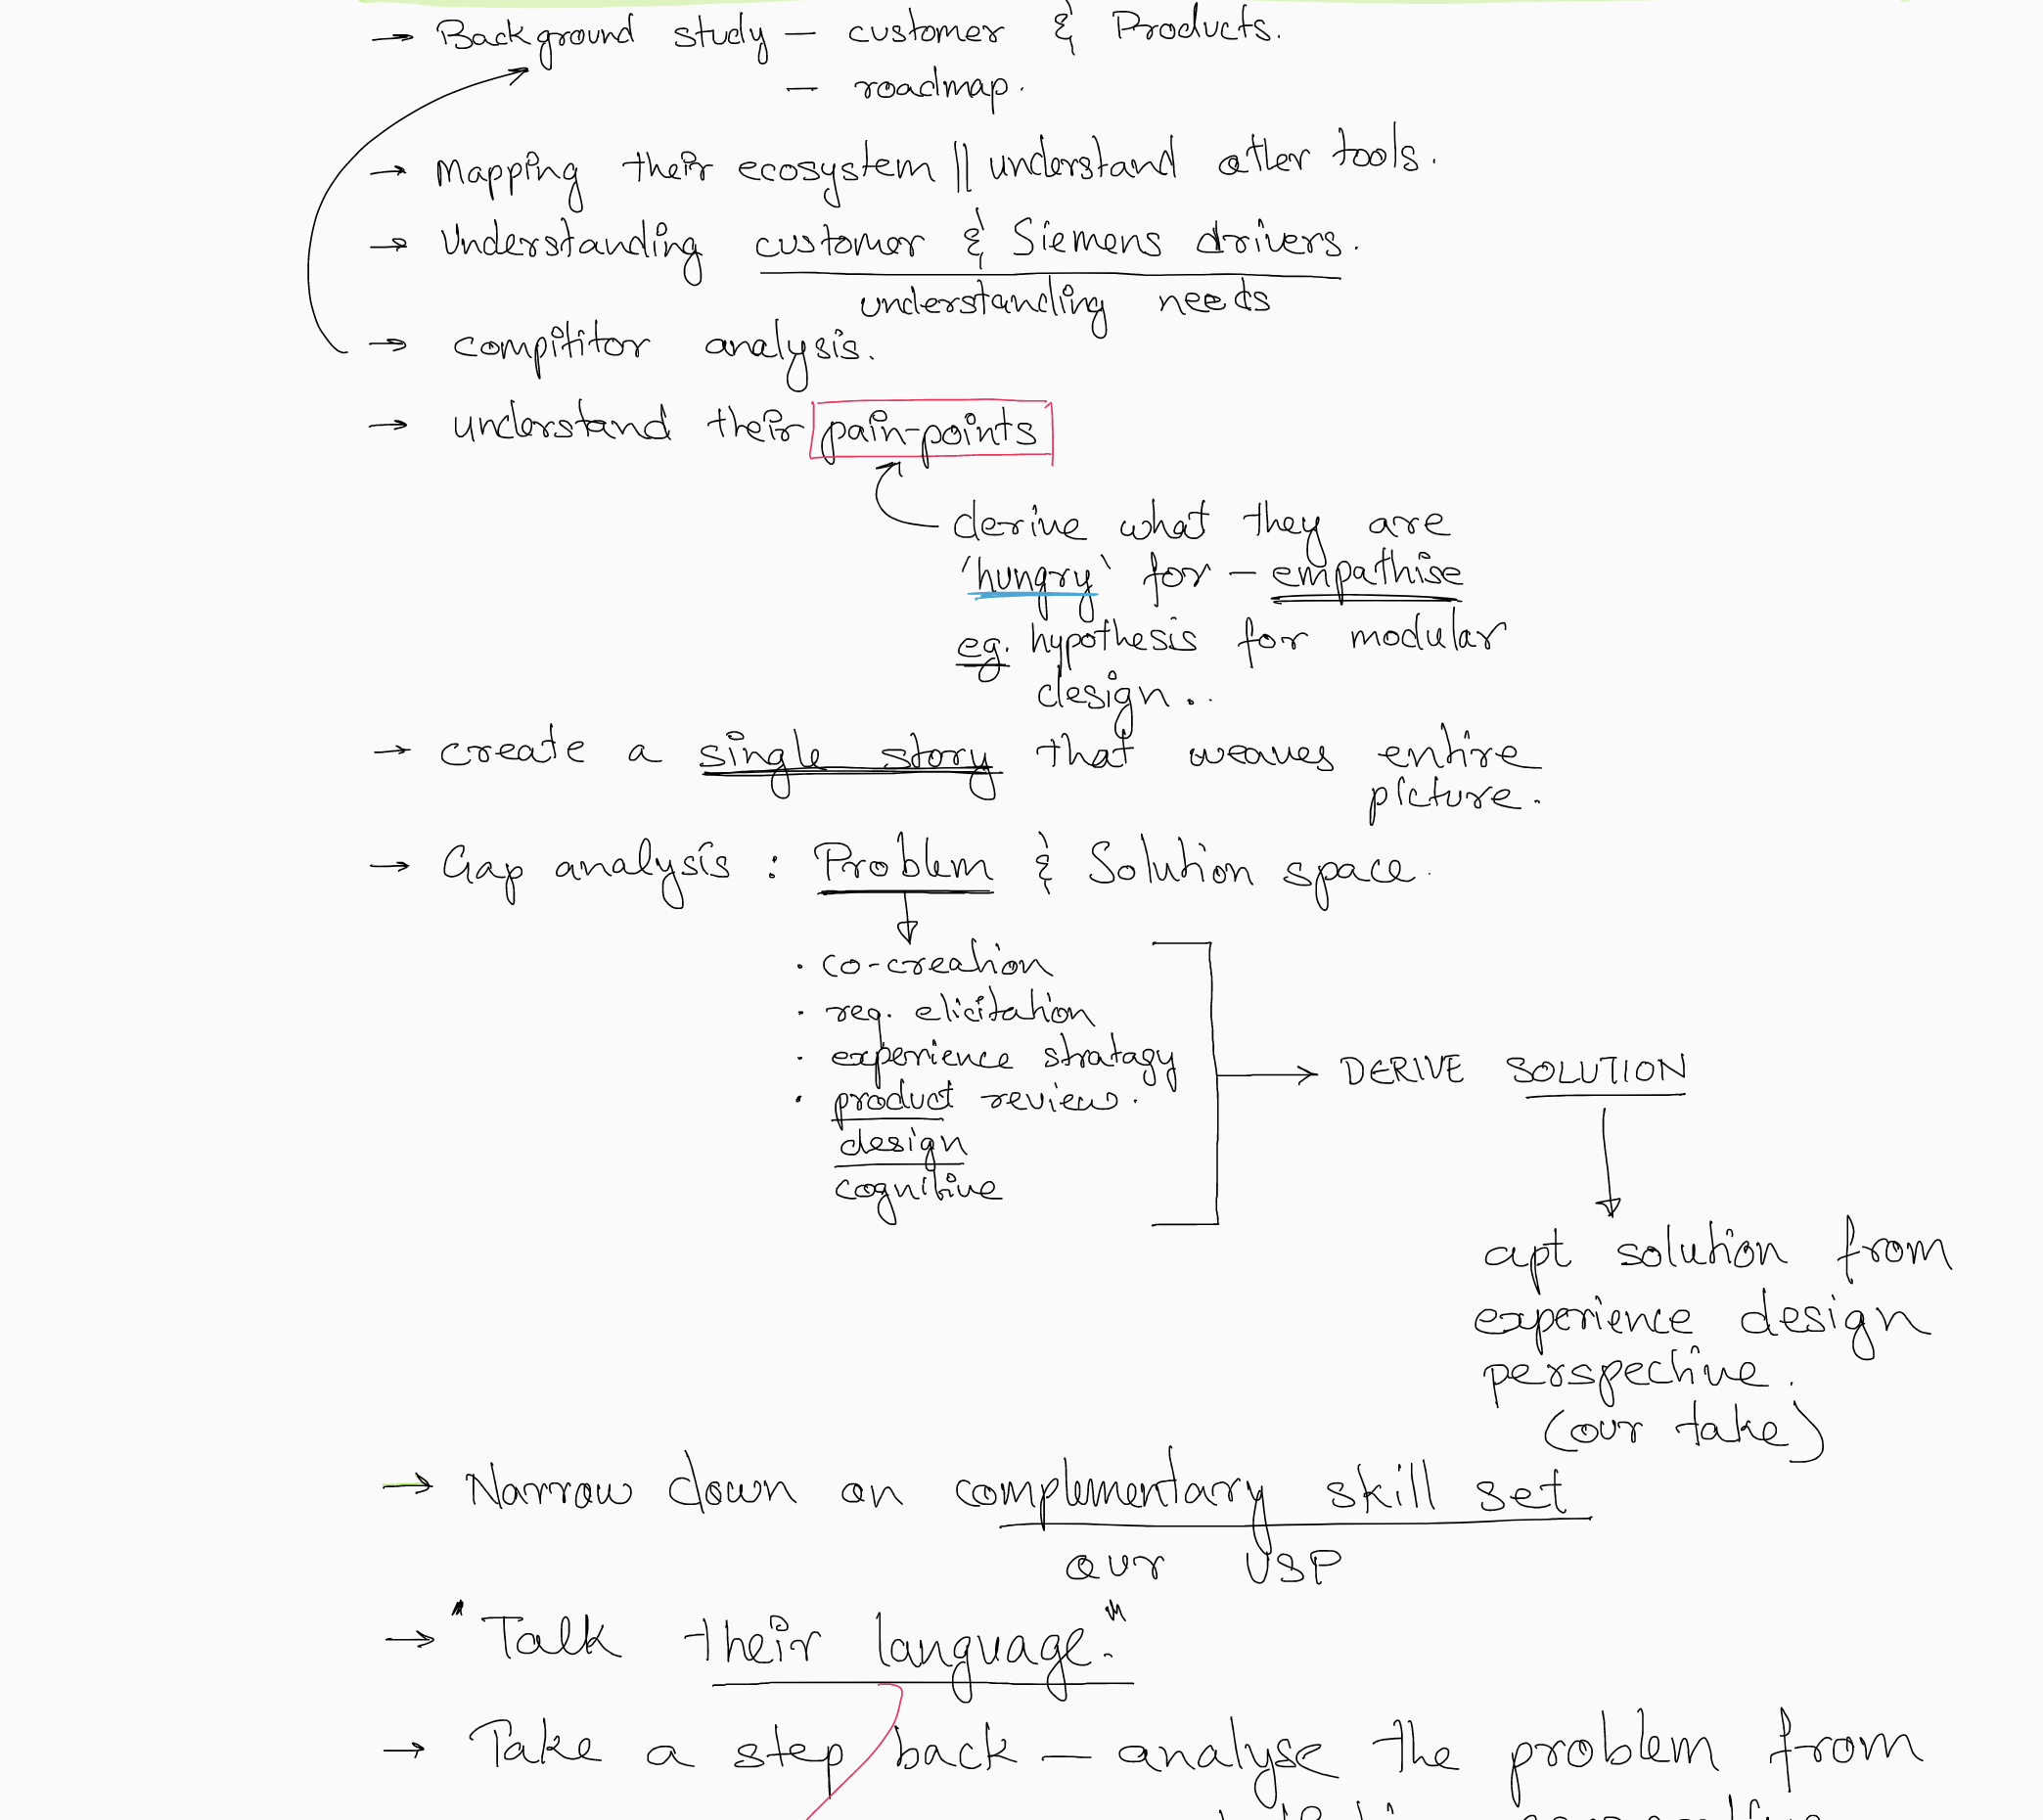 → Background study – customer & Products.
– roadmap.
→ Mapping their ecosystem || understand other tools.
→ Understanding customer & Siemens drivers.
understanding needs
→ compititor analysis.
→ understand their pain-points
derive what they are
'hungry' for – empathise
eg. hypothesis for modular
design..
→ create a single story that weaves entire
picture.
→ Gap analysis : Problem & Solution space.
· co-creation
· req. elicitation
· experience stratagy
· product review.
design
cognitive
→ DERIVE SOLUTION
apt solution from
experience design
perspective.
(our take)
→ Narrow down on complementary skill set
our USP
→ "Talk their language."
→ Take a step back – analyse the problem from